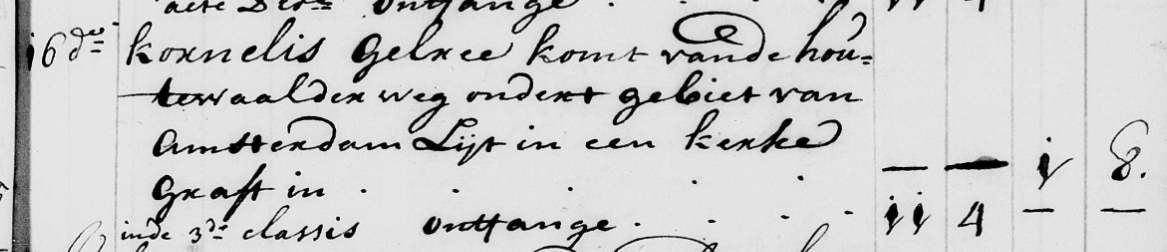 acte Desn ontfange . . . 11 4
16 de kornelis Gelree komt vande hou=
tewaalder weg ondert gebiet van
Amsterdam Lijt in een kerke
Graft in . . . . . — — 1 8.
inde 3de classis ontfange . . . . 11 4 — —